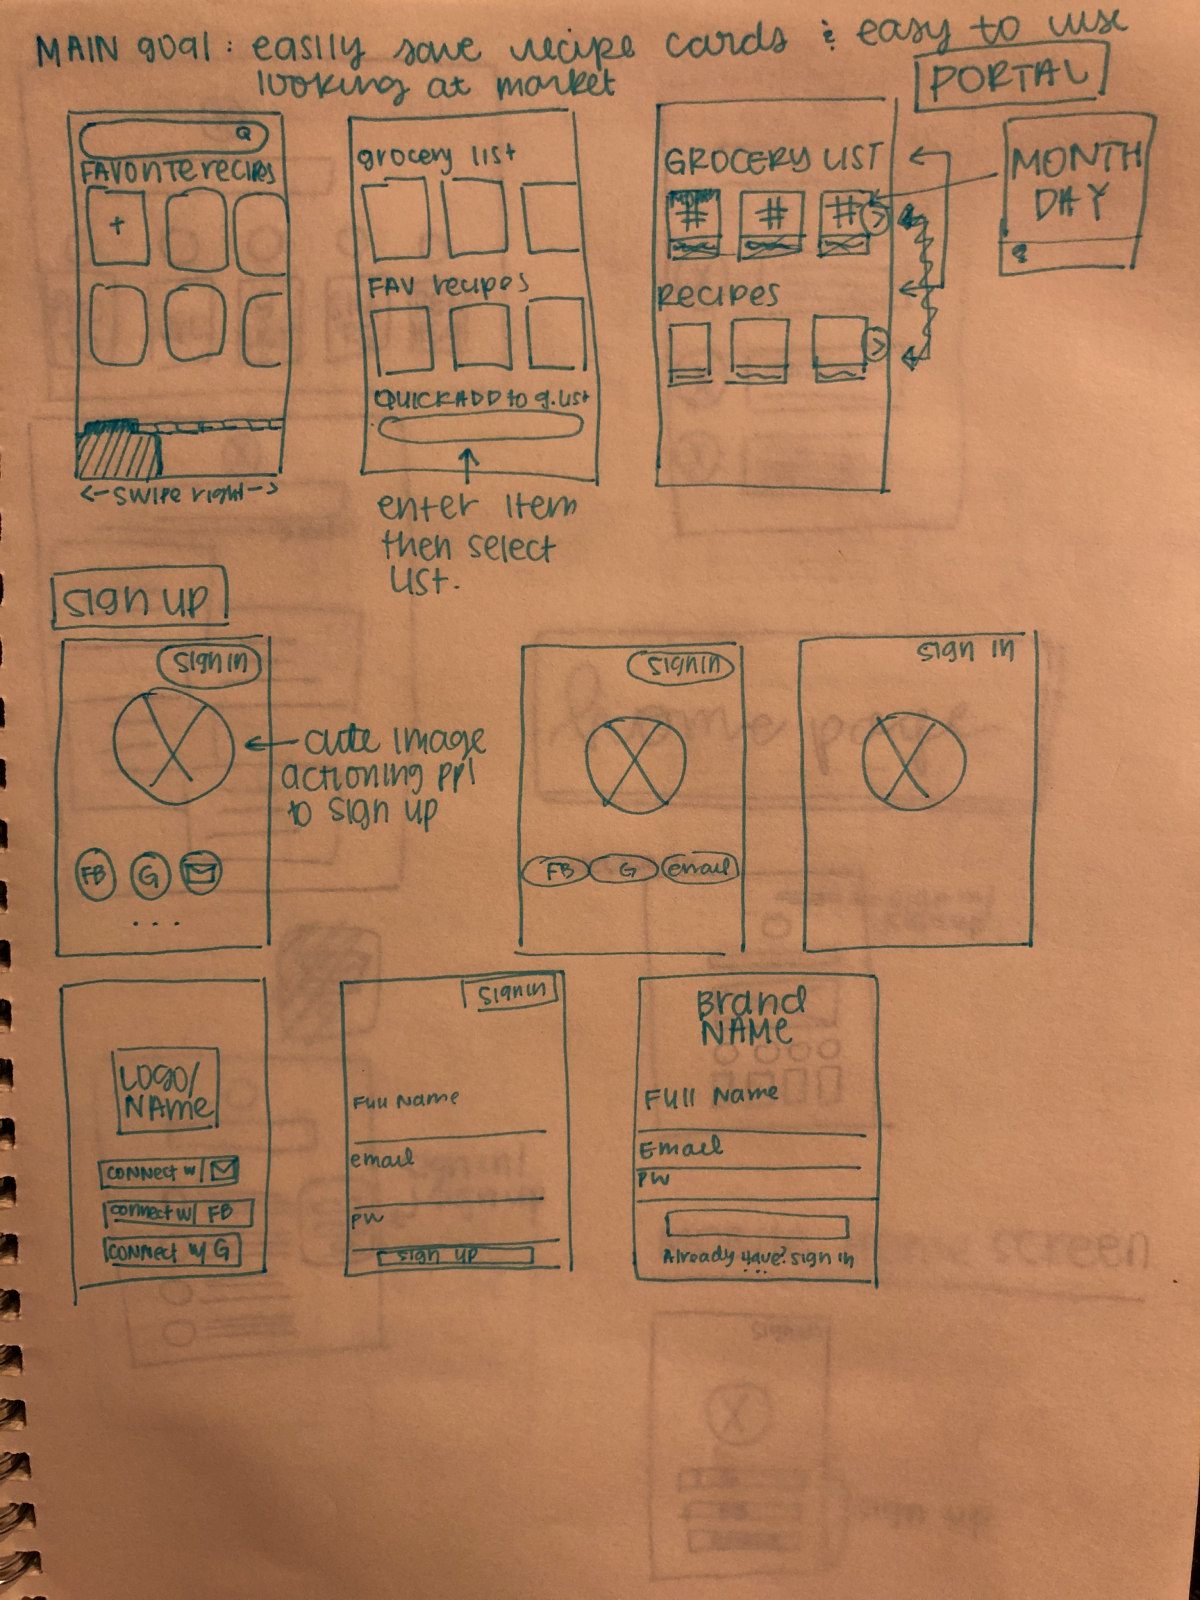 MAIN goal : easily save recipe cards & easy to use
looking at market
PORTAL
FAVORITE recipes
+
<- SWIPE right ->
grocery list
FAV recipes
QUICK ADD to g. list
enter item
then select
list.
GROCERY LIST
# # #
> 
RECIPES
>
MONTH
DAY
SIGN UP
SIGN IN
cute image
actioning ppl
to sign up
FB G
...
SIGN IN
FB G email
sign in
LOGO/
NAME
CONNECT w/
connect w/ FB
CONNECT w/ G
SIGN IN
Full Name
email
PW
SIGN UP
Brand
NAME
Full Name
Email
PW
Already have? sign in
...
home page
screen
sign up